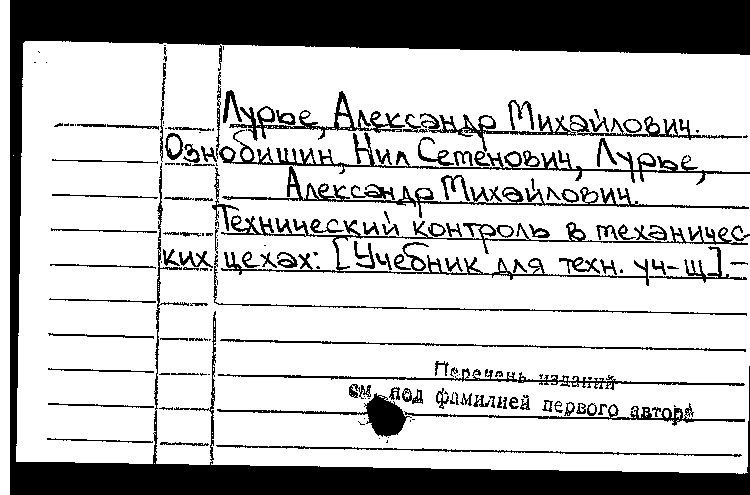 Лурье, Александр Михайлович.
Ознобишин, Нил Сетенович, Лурье,
Александр Михайлович.
Технический контроль в механичес-
ких цехах: [Учебник для техн. уч-щ].–
Перечень изданий
см. под фамилией первого автора